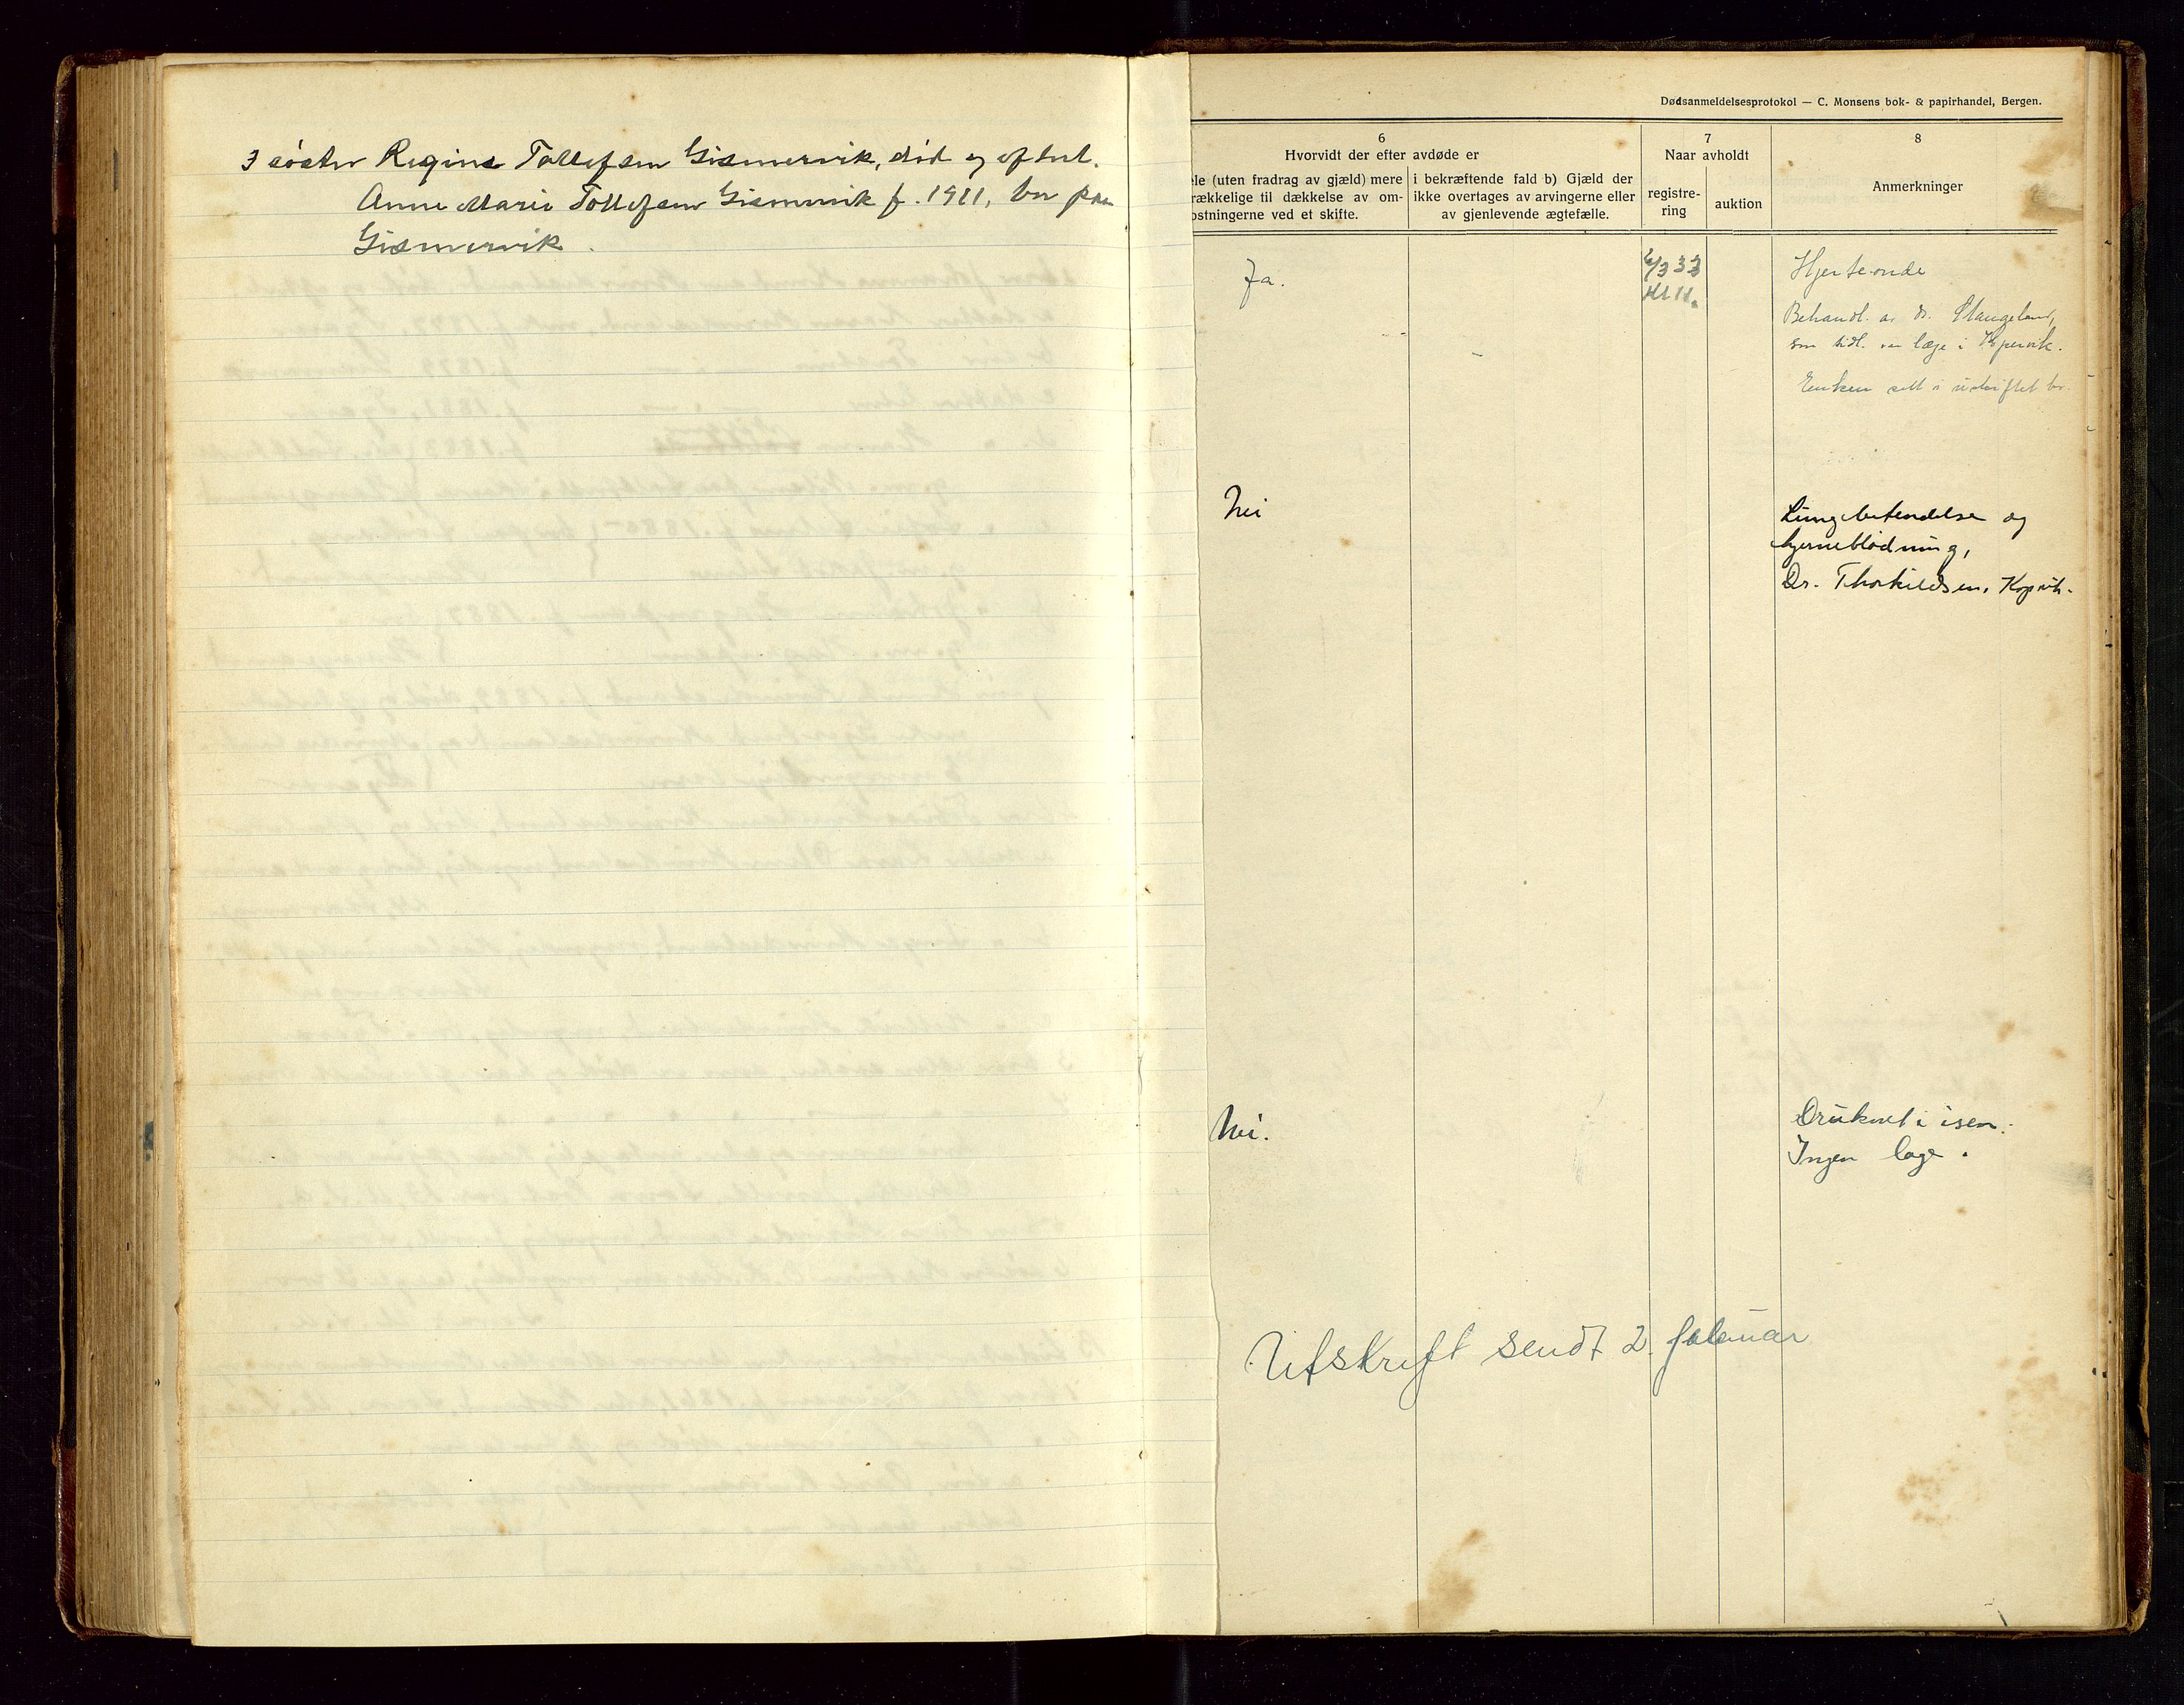 3 søster Regine Tollefsen Gismervik, død og efterl.
Anne Marie Tollefsen Gismervik f. 1911, bor paa
Gismervik.
Dødsanmeldelsesprotokol — C. Monsens bok- & papirhandel, Bergen.
6
Hvorvidt der efter avdøde er
ele (uten fradrag av gjæld) mere
rækkelige til dækkelse av om-
ostningerne ved et skifte.
i bekræftende fald b) Gjæld der
ikke overtages av arvingerne eller
av gjenlevende ægtefælle.
7
Naar avholdt
registre-
ring
auktion
8
Anmerkninger
Ja.
6/3 33
Kl 11.
Hjerteonde
Behandl. av dr. Stangeland,
som tidl. var læge i Kopervik.
Enken sitt i uskiftet bo.
Nei
Lungebetendelse og
hjerneblødning,
Dr. Thorkildsen, Kopvik.
Nei.
Druknet i isen.
Ingen læge.
Utskrift sendt 2. februar